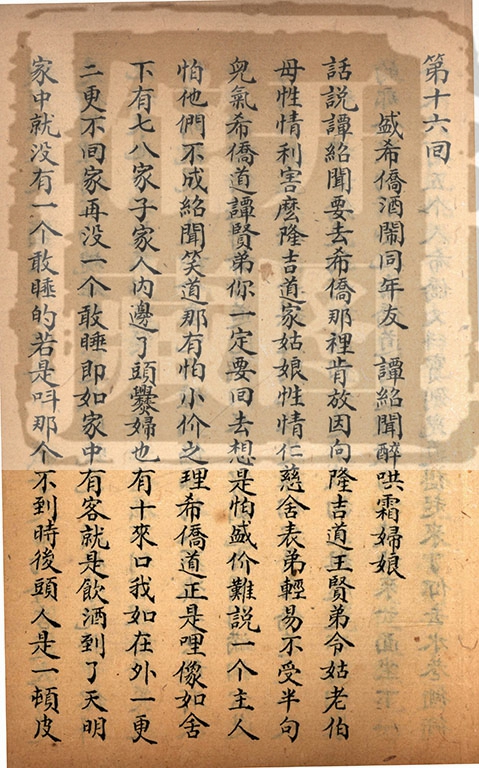 第十六回
盛希僑酒鬧同年友　譚紹聞醉哄霜婦娘
話說譚紹聞要去希僑那裡肯放因向隆吉道王賢弟令姑老伯
母性情利害麽隆吉道家姑娘性情仁慈舍表弟輕易不受半句
兒氣希僑道譚賢弟你一定要回去想是怕盛价難說一个主人
怕他們不成紹聞笑道那有怕小价之理希僑道正是哩像如舍
下有七八家子家人內邊了頭爨婦也有十來口我如在外一更
二更不回家再沒一个敢睡即如家中有客就是飲酒到了天明
家中就沒有一个敢睡的若是呌那个不到時後頭人是一頓皮